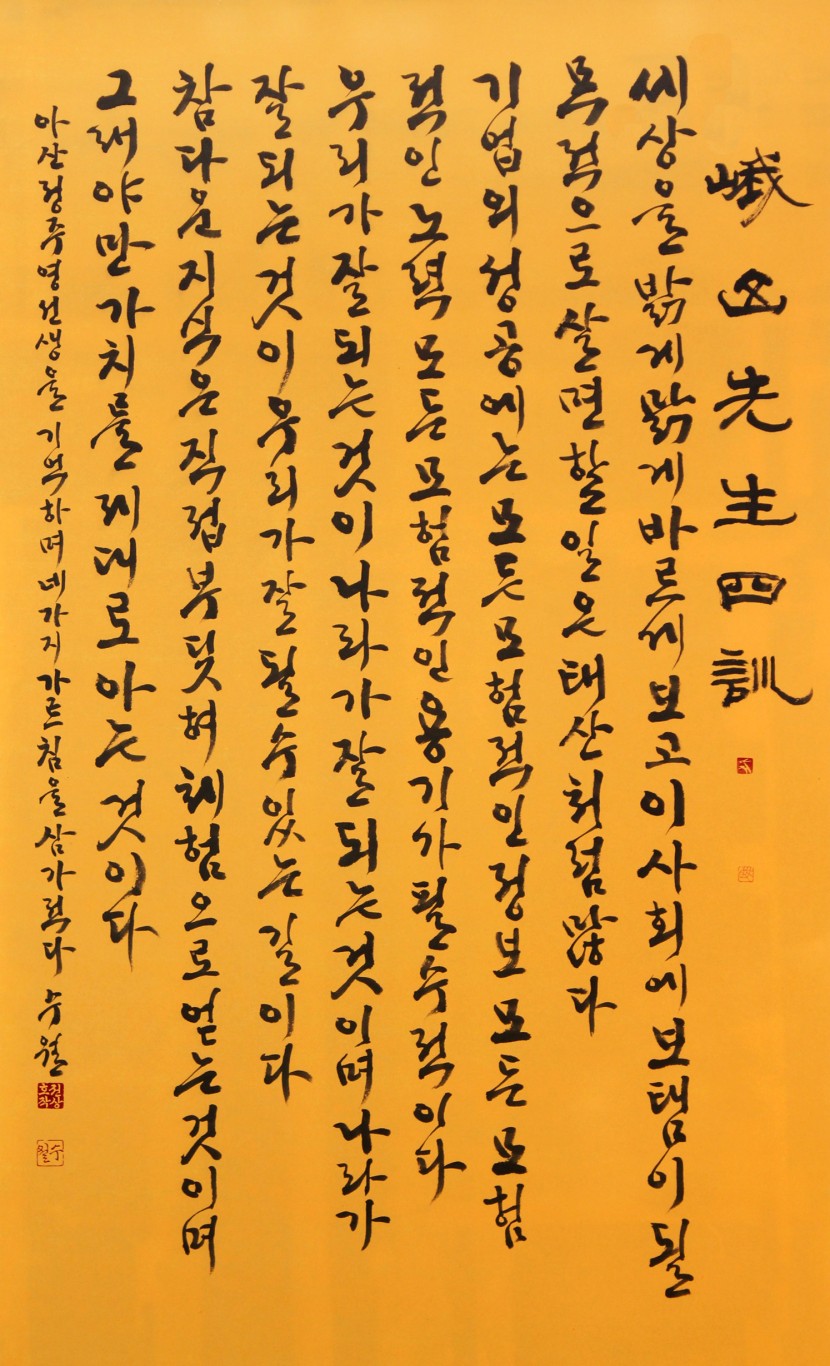 峨山先生四訓
세상을 밝게 맑게 바르게 보고 이 사회에 보탬이 될
목적으로 살면 할 일은 태산처럼 많다
기업의 성공에는 모든 모험적인 정보 모든 모험
적인 노력 모든 모험적인 용기가 필수적이다
우리가 잘 되는 것이 나라가 잘 되는 것이며 나라가
잘 되는 것이 우리가 잘 될 수 있는 길이다
참다운 지식은 직접 부딪혀 체험으로 얻는 것이며
그래야만 가치를 제대로 아는 것이다
아산 정주영 선생을 기억하며 네가지 가르침을 삼가 적다 수월
수월